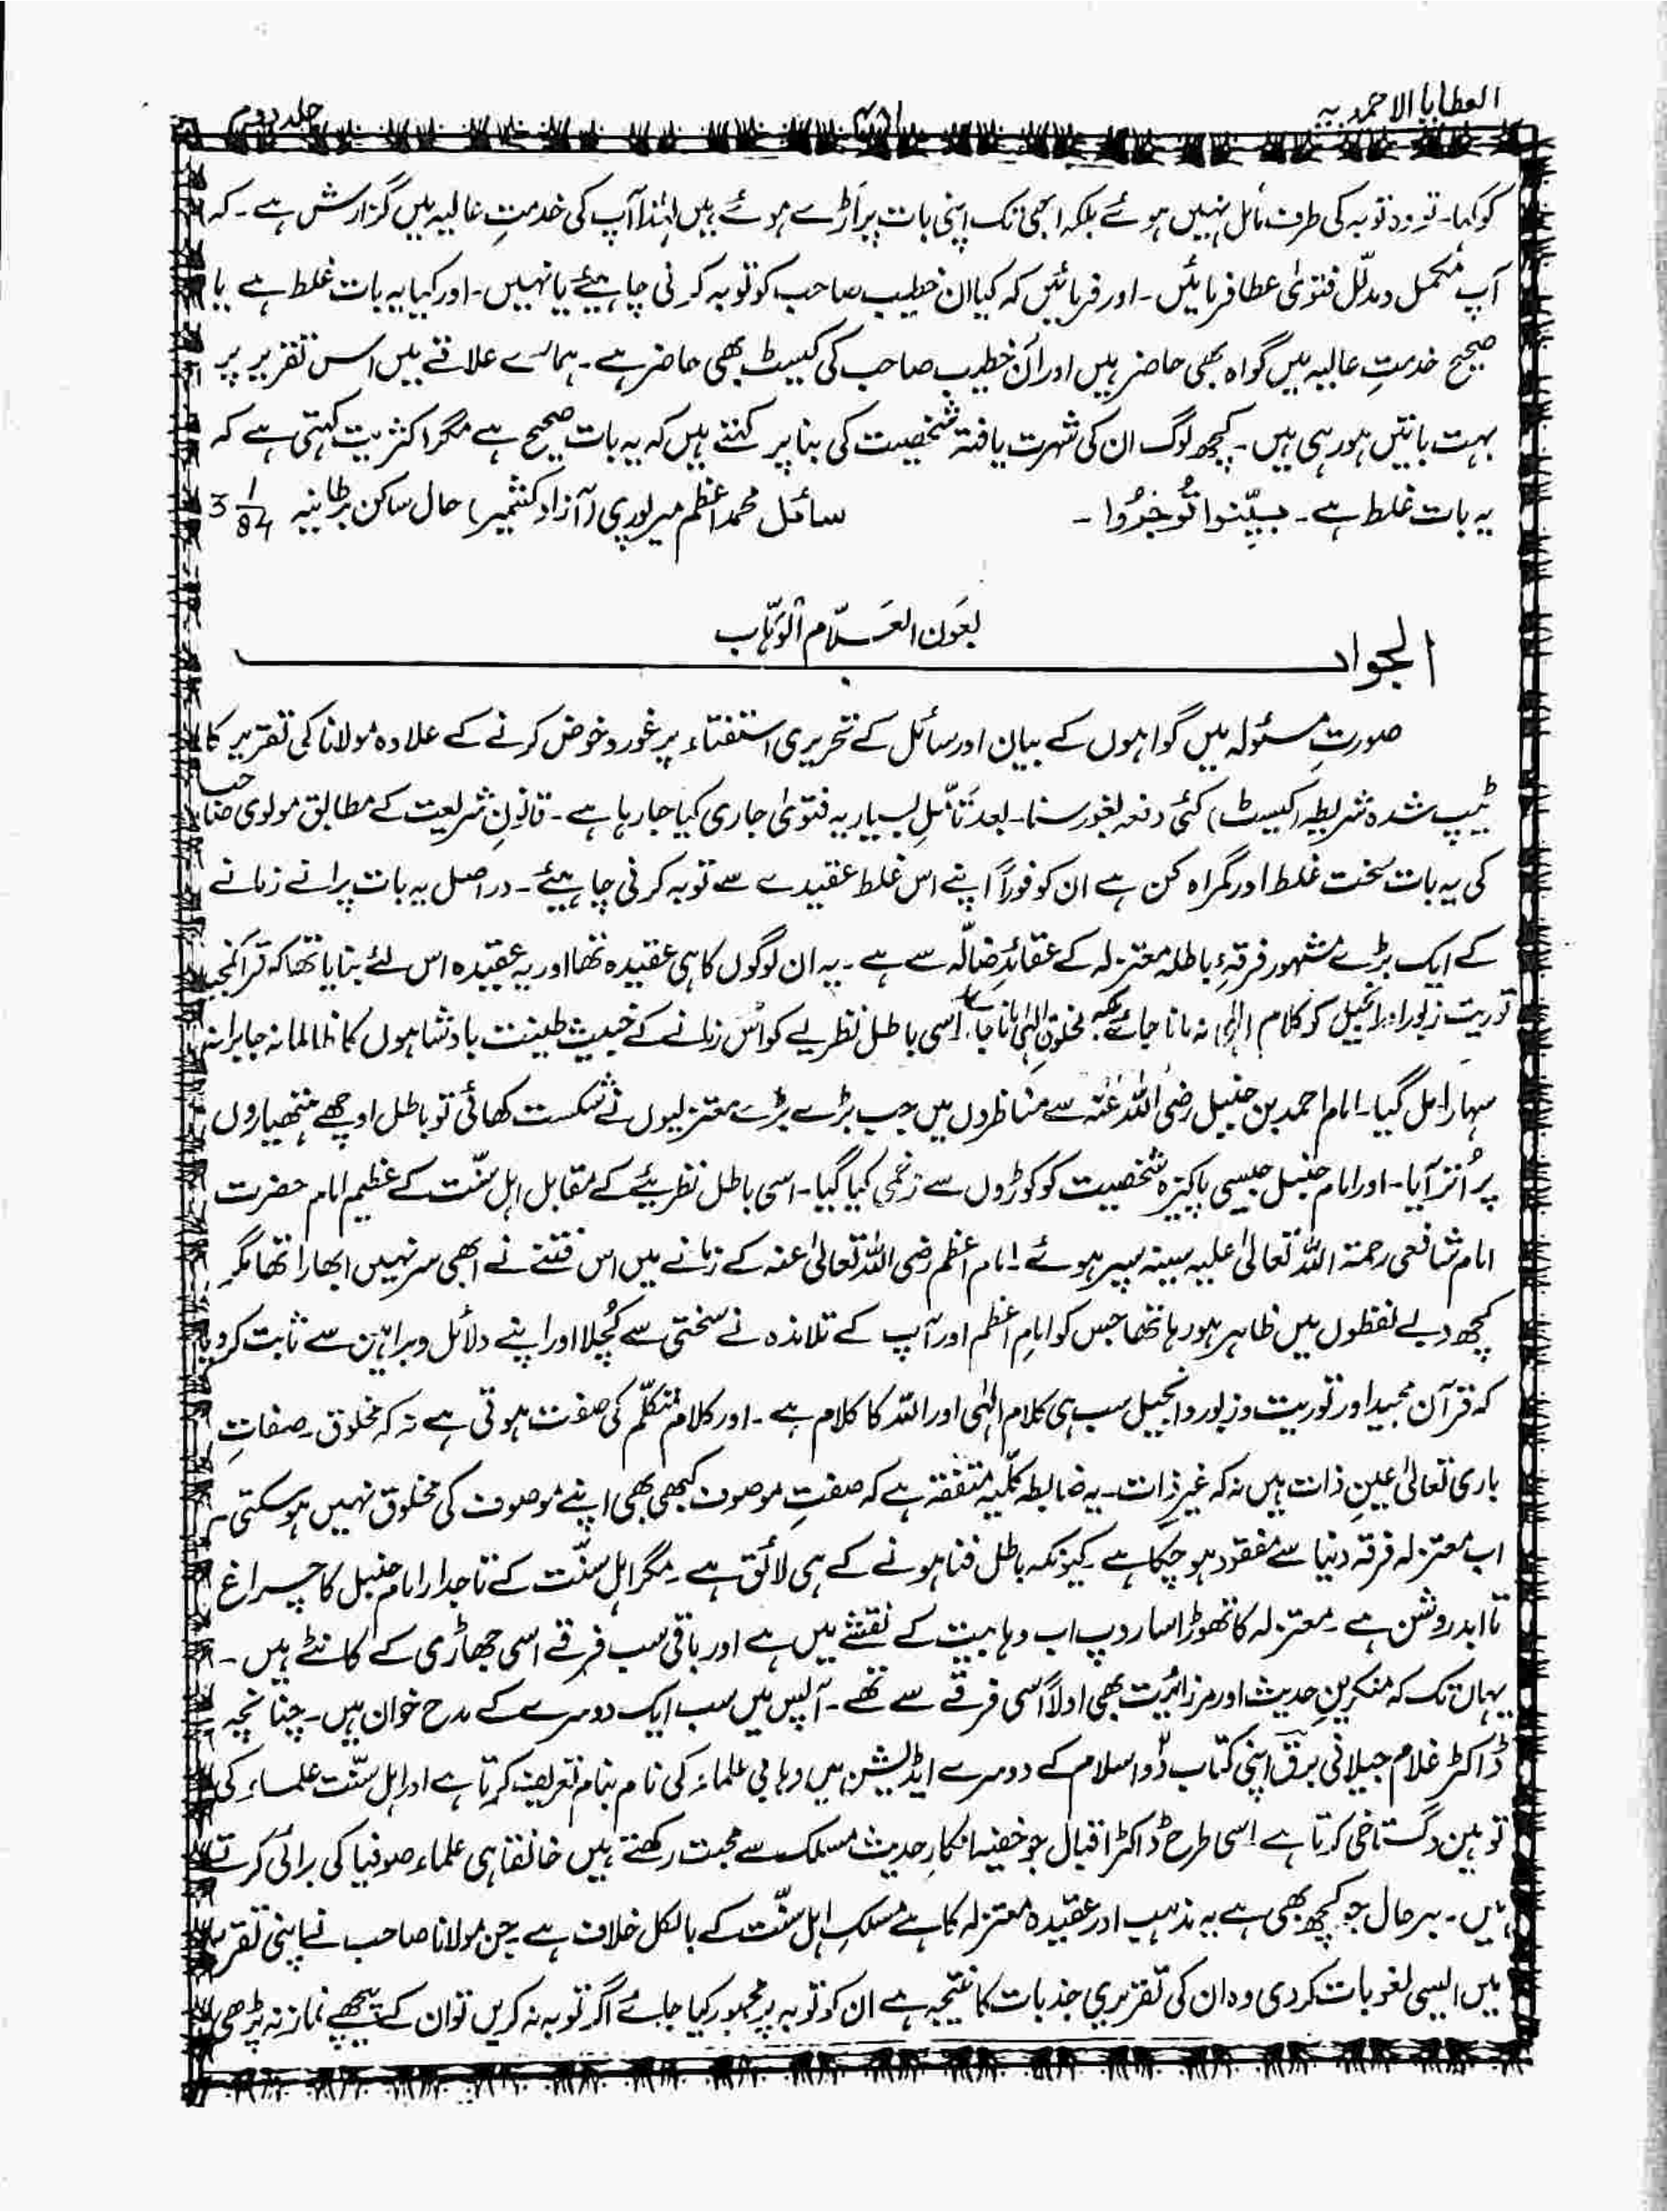 العطایا الاحمدیہ
جلد دوم
کو کہا۔ تو وہ توبہ کی طرف مائل نہیں ہوئے بلکہ ابھی تک اپنی بات پر اَڑے ہوئے ہیں لہٰذا آپ کی خدمتِ عالیہ میں گزارش ہے۔ کہ
آپ مکمل و مدلّل فتویٰ عطا فرمائیں۔ اور فرمائیں کہ کیا ان خطیب صاحب کو توبہ کرنی چاہیئے یا نہیں۔ اور کیا یہ بات غلط ہے یا
صحیح خدمتِ عالیہ میں گواہ بھی حاضر ہیں اور اُن خطیب صاحب کی کیسٹ بھی حاضر ہے۔ ہمارے علاقے میں اس تقریر پر
بہت باتیں ہو رہی ہیں۔ کچھ لوگ ان کی شہرت یافتہ شخصیت کی بنا پر کہتے ہیں کہ یہ بات صحیح ہے مگر اکثریت کہتی ہے کہ
یہ بات غلط ہے۔ بَیِّنوا تُوجَرُوا۔ سائل محمد اعظم میرپوری (آزاد کشمیر) حال ساکن برطانیہ 3 1/84
بعَونِ العَلّام الوَہّاب
الجواب
صورتِ مسئولہ میں گواہوں کے بیان اور سائل کے تحریری استفتاء پر غور و خوض کرنے کے علاوہ مولانا کی تقریر کا
ٹیپ شدہ شریطہ (کیسٹ) کئی دفعہ بغور سنا۔ بعد تَأمّلِ بسیار یہ فتویٰ جاری کیا جا رہا ہے۔ قانونِ شریعت کے مطابق مولوی صاحب
کی یہ بات سخت غلط اور گمراہ کن ہے ان کو فوراً اپنے اس غلط عقیدے سے توبہ کرنی چاہیئے۔ دراصل یہ بات پرانے زمانے
کے ایک بڑے مشہور فرقہء باطلہ معتزلہ کے عقائدِ ضالّہ سے ہے۔ یہ ان لوگوں کا ہی عقیدہ تھا اور یہ عقیدہ اس لئے بنایا تھا کہ قرآن مجید
توریت زبور اور انجیل کو کلام الٰہی نہ مانا جائے بلکہ مخلوقِ الٰہی مانا جائے۔ اسی باطل نظریے کو اُس زمانے کے خبیث طینت بادشاہوں کا ظالمانہ جابرانہ
سہارا مل گیا۔ امام احمد بن حنبل رضی اللہ عنہ سے مناظروں میں جب بڑے بڑے معتزلیوں نے شکست کھائی تو باطل اوچھے ہتھیاروں
پر اُتر آیا۔ اور امام حنبل جیسی پاکیزہ شخصیت کو کوڑوں سے زخمی کیا گیا۔ اسی باطل نظریئے کے مقابل اہل سنّت کے عظیم امام حضرت
امام شافعی رحمۃ اللہ تعالیٰ علیہ سینہ سپر ہوئے۔ امام اعظم رضی اللہ تعالیٰ عنہ کے زمانے میں اس فتنے نے ابھی سر نہیں ابھارا تھا مگر
کچھ دبے لفظوں میں ظاہر ہو رہا تھا جس کو امامِ اعظم اور آپ کے تلامذہ نے سختی سے کُچلا اور اپنے دلائل و براہین سے ثابت کر دیا
کہ قرآن مجید اور توریت و زبور و انجیل سب ہی کلام الٰہی اور اللہ کا کلام ہے۔ اور کلام متکلّم کی صفت ہوتی ہے نہ کہ مخلوق۔ صفاتِ
باری تعالیٰ عینِ ذات ہیں نہ کہ غیرِ ذات۔ یہ ضابطہ کلّیہ متفقہ ہے کہ صفتِ موصوف کبھی بھی اپنے موصوف کی مخلوق نہیں ہو سکتی۔
اب معتزلہ فرقہ دنیا سے مفقود ہو چکا ہے۔ کیونکہ باطل فنا ہونے کے ہی لائق ہے۔ مگر اہل سنّت کے تاجدار امام حنبل کا چراغ
تا ابد روشن ہے۔ معتزلہ کا تھوڑا سا روپ اب وہابیت کے نقشے میں ہے اور باقی سب فرقے اسی جھاڑی کے کانٹے ہیں۔
یہاں تک کہ منکرینِ حدیث اور مرزائیت بھی اولاً اُسی فرقے سے تھے۔ آپس میں سب ایک دوسرے کے مدح خوان ہیں۔ چنانچہ
ڈاکٹر غلام جیلانی برق اپنی کتاب دُو اسلام کے دوسرے ایڈیشن میں وہابی علماء کی نام بنام تعریف کرتا ہے اور اہل سنّت علماء کی
توہین و گستاخی کرتا ہے اسی طرح ڈاکٹر اقبال جو خفیہ انکارِ حدیث مسلک سے محبت رکھتے ہیں خانقاہی علماء صوفیا کی برائی کرتے
ہیں۔ بہر حال جو کچھ بھی ہے یہ مذہب اور عقیدہ معتزلہ کا ہے مسلکِ اہل سنّت کے بالکل خلاف ہے جن مولانا صاحب نے اپنی تقریر
میں ایسی لغو بات کر دی وہ ان کی تقریری جذبات کا نتیجہ ہے ان کو توبہ پر مجبور کیا جائے اگر توبہ نہ کریں تو ان کے پیچھے نماز نہ پڑھی